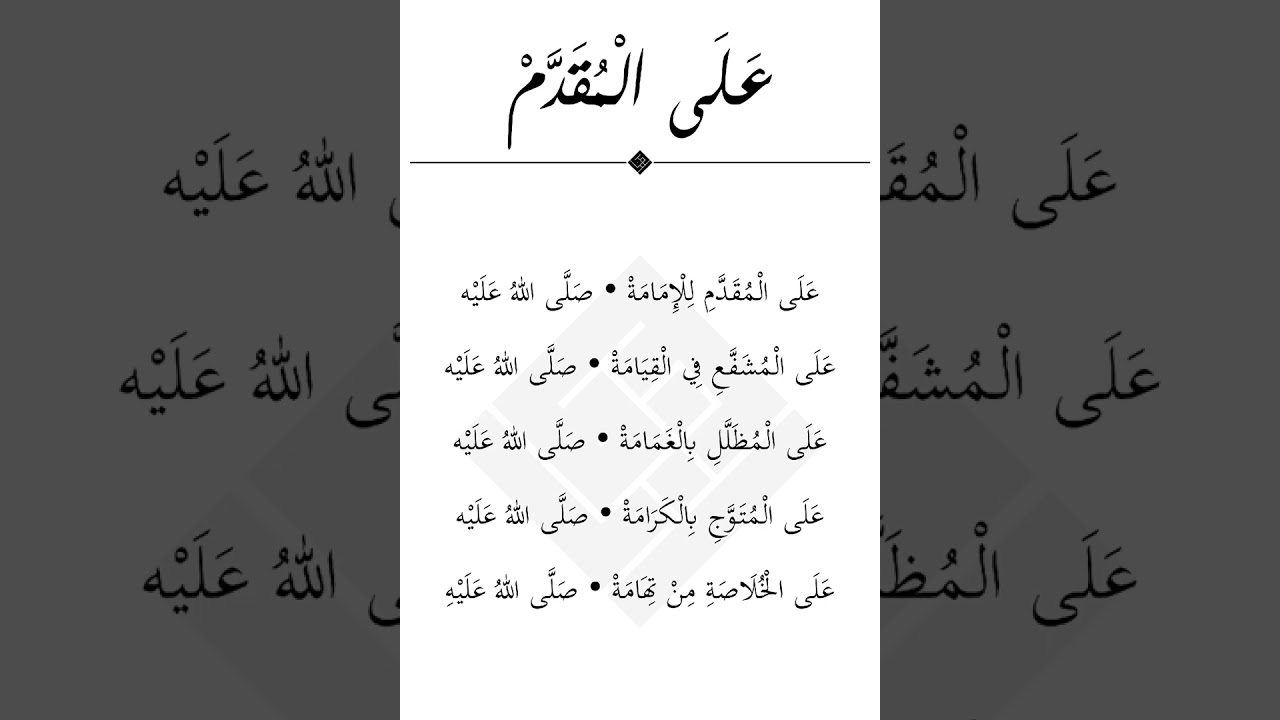 عَلَى الْمُقَدَّمْ
عَلَى الْمُقَدَّمِ لِلْإِمَامَةْ • صَلَّى اللهُ عَلَيْه
عَلَى الْمُشَفَّعِ فِي الْقِيَامَةْ • صَلَّى اللهُ عَلَيْه
عَلَى الْمُظَلَّلِ بِالْغَمَامَةْ • صَلَّى اللهُ عَلَيْه
عَلَى الْمُتَوَّجِ بِالْكَرَامَةْ • صَلَّى اللهُ عَلَيْه
عَلَى الْخُلَاصَةِ مِنْ تِهَامَةْ • صَلَّى اللهُ عَلَيْهِ